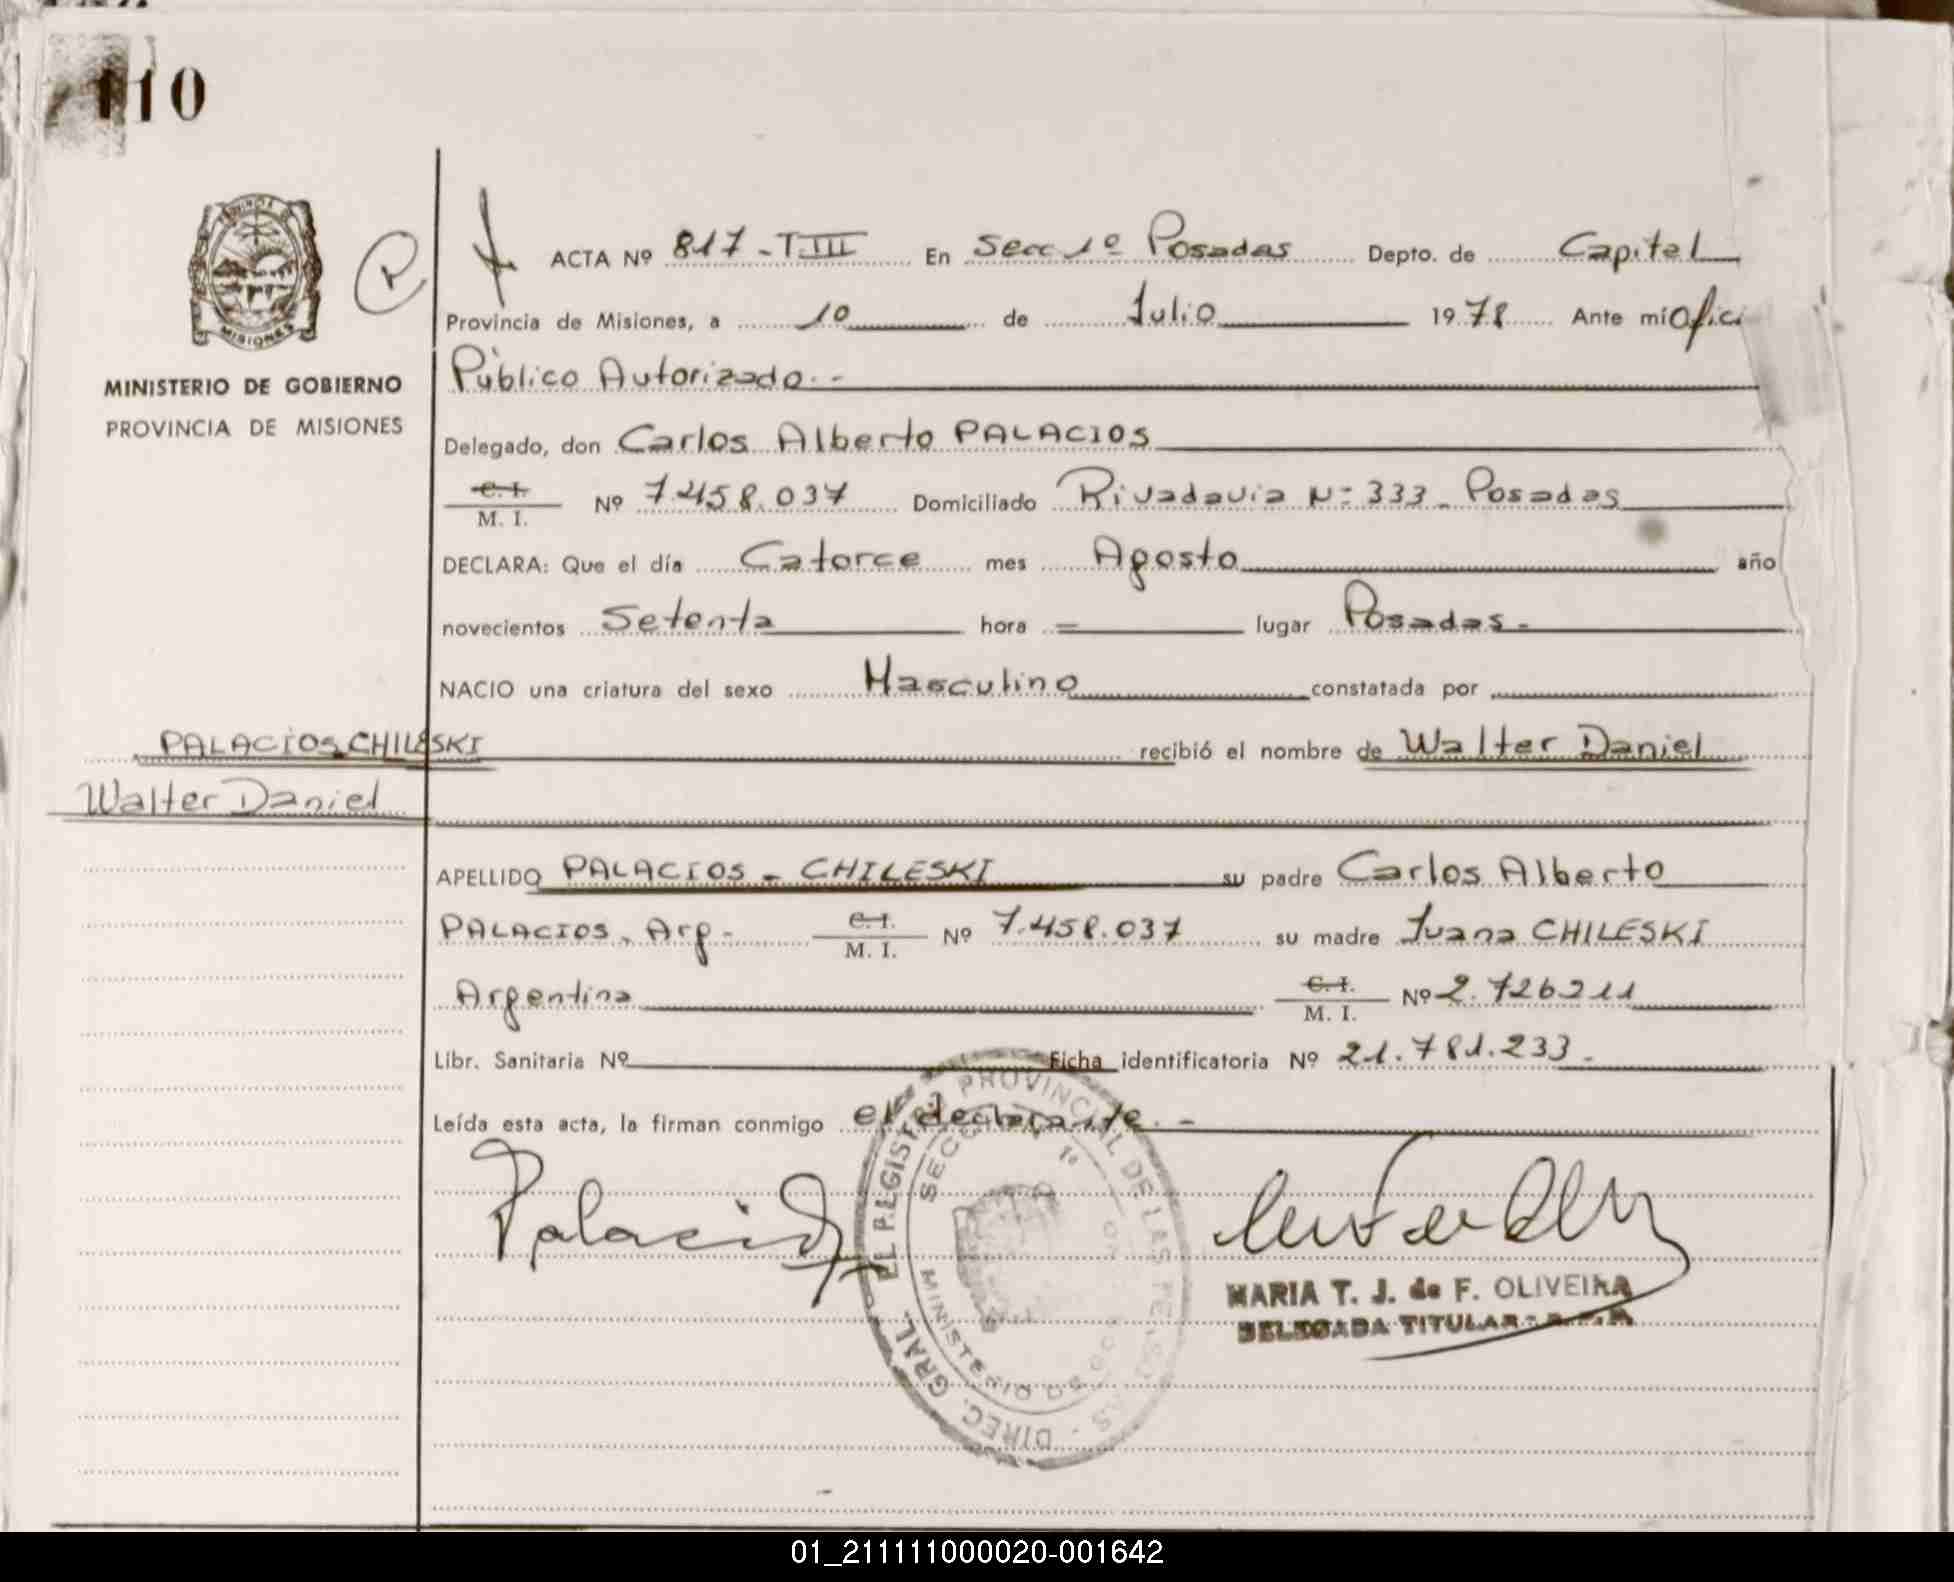 110
ACTA Nº 817-T.III En Secc 1º Posadas Depto. de Capital
Provincia de Misiones, a 10 de Julio 1978 Ante mí Ofici
Público Autorizado.-
MINISTERIO DE GOBIERNO
PROVINCIA DE MISIONES
Delegado, don Carlos Alberto PALACIOS
C. I.
M. I. Nº 7.458.037 Domiciliado Rivadavia Nº 333- Posadas
DECLARA: Que el día Catorce mes Agosto año
novecientos Setenta hora = lugar Posadas.-
NACIO una criatura del sexo Masculino constatada por
PALACIOS CHILESKI recibió el nombre de Walter Daniel
Walter Daniel
APELLIDO PALACIOS - CHILESKI su padre Carlos Alberto
PALACIOS, Arg.- C. I. M. I. Nº 7.458.037 su madre Juana CHILESKI
Argentina C. I. M. I. Nº 2.726211
Libr. Sanitaria Nº Ficha identificatoria Nº 21.781.233.
Leída esta acta, la firman conmigo el declarante.-
Palacios
DIREC. GRAL. REGISTRO PROVINCIAL DE LAS PERSONAS
SECC 1º
MINISTERIO
MARIA T. J. de F. OLIVEIRA
DELEGADA TITULAR
01_211111000020-001642